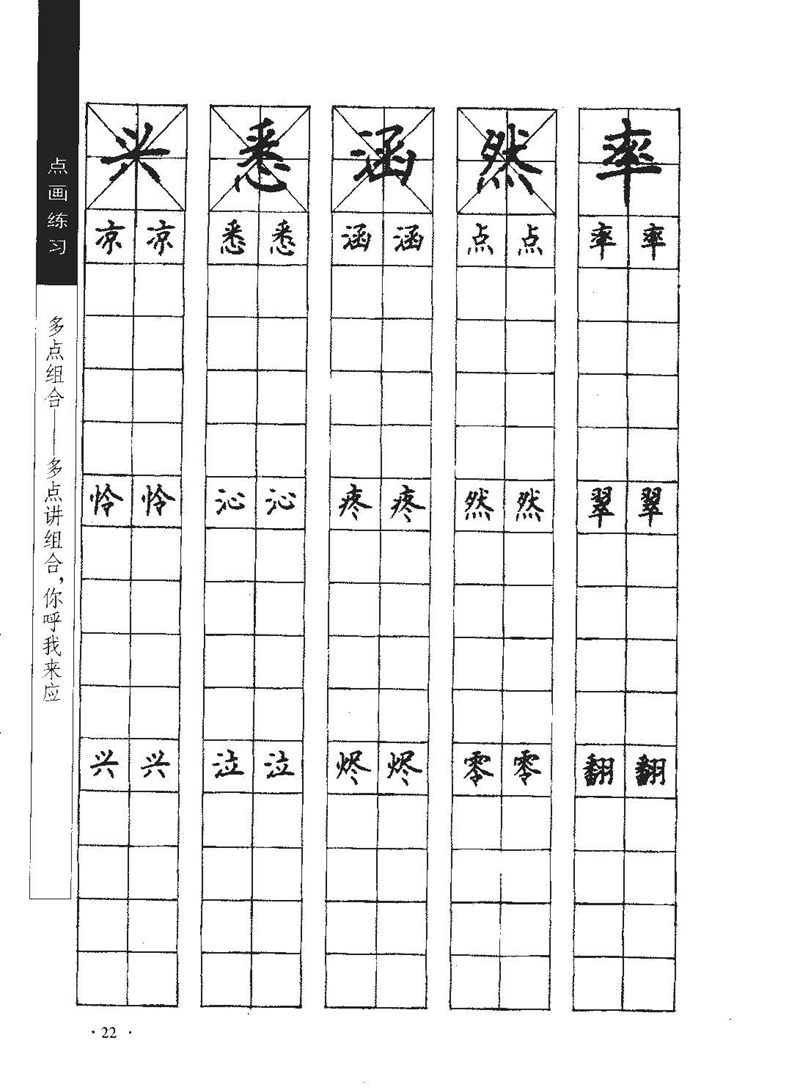 点画练习
多点组合——多点讲组合，你呼我来应
兴 悉 涵 然 率
凉 凉 悉 悉 涵 涵 点 点 率 率
怜 怜 沁 沁 疼 疼 然 然 翠 翠
兴 兴 泣 泣 烬 烬 零 零 翻 翻
·22·